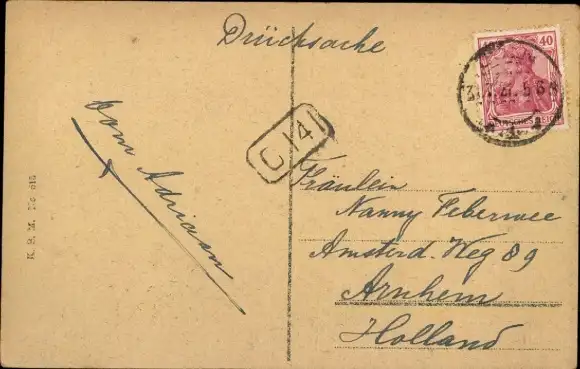 Drucksache
40
C 14
Oom Adriaan
K. B. M. No 615
Fräulein
Nanny Feberwee
Amsterd. Weg 89
Arnhem
Holland